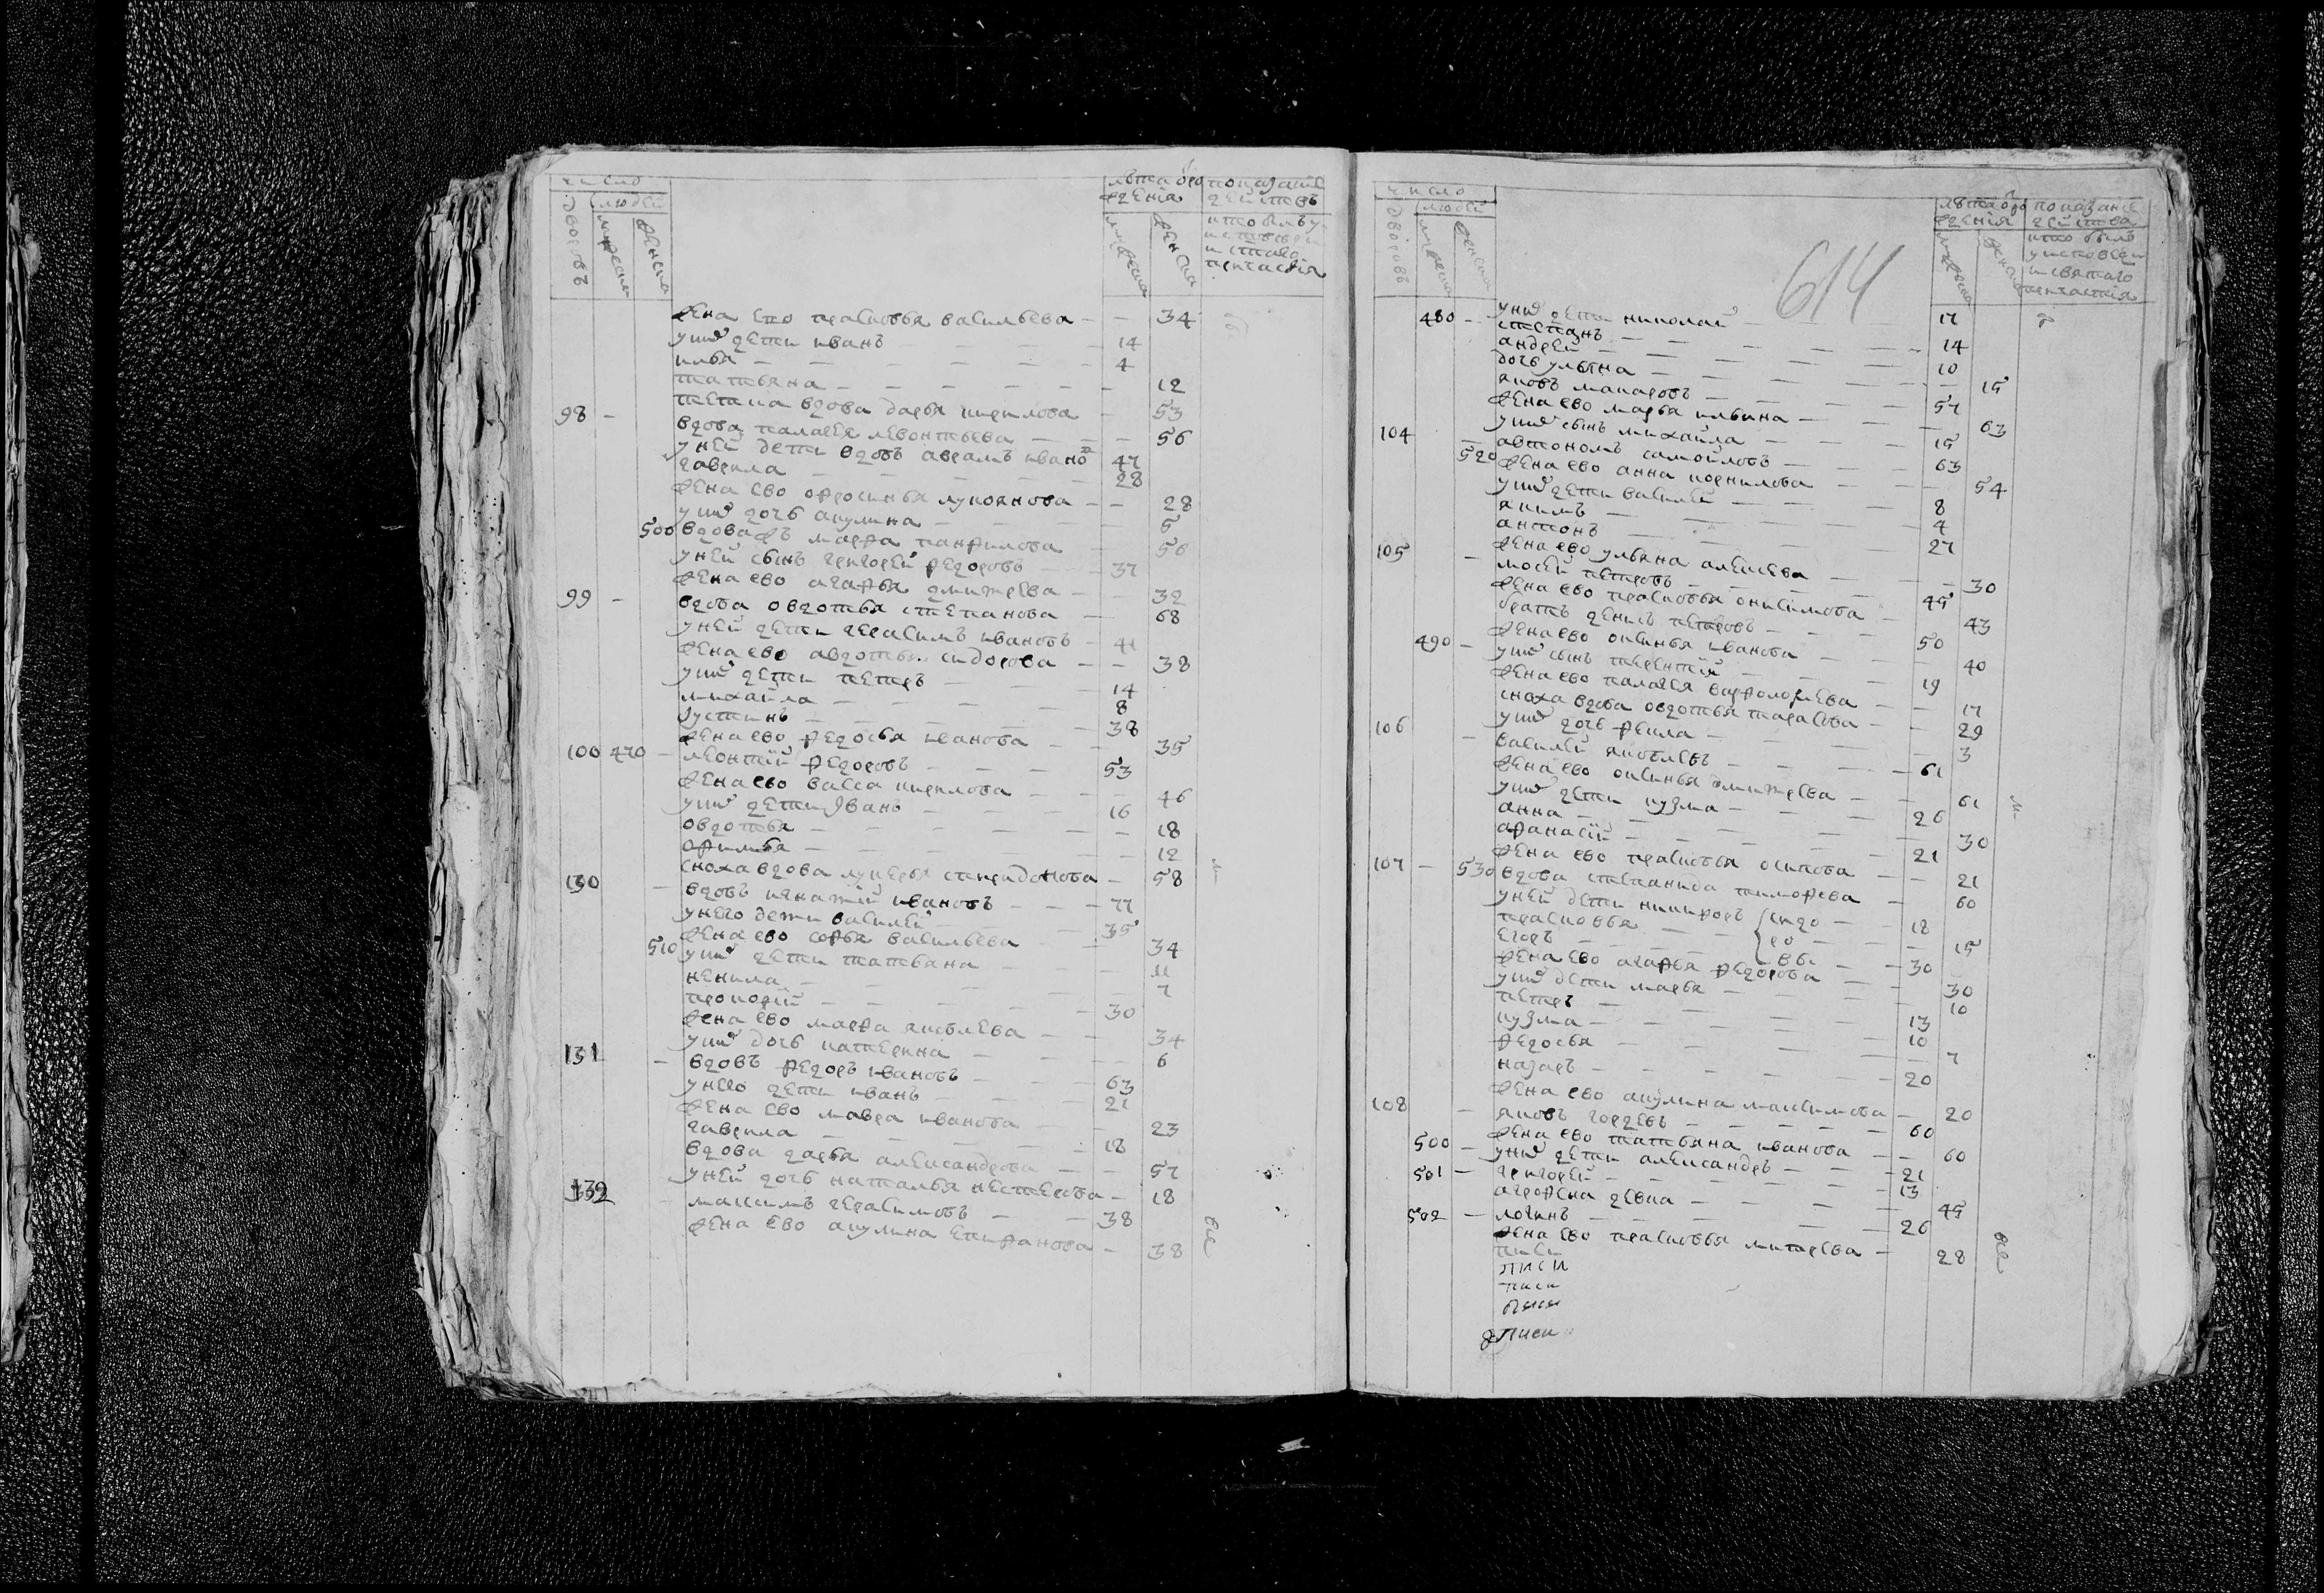 число
людей
дворовъ
мужеска
женска
лѣта о рождения
показание действъ
мужеска
женска
кто былъ у исповеди и святаго причастия
жена ево прасковья васильева — 34
у них дети иванъ — 14
илья — 4
татьяна — 12
тетка вдова дарья кирилова — 53
98 — вдова палагея левонтьева — 56
у ней дети вдовъ аврамъ ивановъ 47
гаврила — 28
жена ево офросинья лукоянова — 28
у них дочь акулина — 5
500 вдова жъ марфа панфилова — 50
у ней сынъ григорей федоровъ — 37
жена ево агафья дмитрева — 32
99 — вдова овдотья степанова — 68
у ней дети герасимъ ивановъ — 41
жена ево авдотья сидорова — 38
у них дети петръ — 14
михайла — 8
устинъ — 38
жена ево федосья иванова — 35
100 470 — леонтий федоровъ — 53
жена ево васса кирилова — 46
у них дети иванъ — 16
овдотья — 18
афимья — 12
сноха вдова лукерья спиридонова — 58
130 — вдовъ игнатий ивановъ — 77
у него дети василей — 35
жена ево софья васильева — 34
510 у них дети татьяна — 11
ненила — 7
прокофий — 30
жена ево марфа яковлева — 34
у них дочь катерина — 6
131 — вдовъ федоръ ивановъ — 63
у него дети иванъ — 21
жена ево мавра иванова — 23
гаврила — 18
вдова дарья александрова — 57
у ней дочь наталья нестерова — 18
132 максимъ герасимовъ — 38
жена ево акулина епифанова — 38
все
614
число
людей
дворовъ
мужеска
женска
лѣта о рождения
показание действа
мужеска
женска
кто былъ у исповеди и святаго причастия
480 — у них дети николай — 17
степанъ — 14
андрей — 10
дочь ульяна — 15
яковъ макаровъ — 57
жена ево марья ильина — 63
у них сынъ михайла — 15
104 — автономъ самойловъ — 63
520 жена ево анна корнилова — 54
у них дети василей — 8
якимъ — 4
антонъ — 27
жена ево ульяна алексева — 30
105 — мосей петровъ — 45
жена ево прасковья онисимова — 43
братъ денисъ петровъ — 50
жена ево оксинья иванова — 40
490 — у них сынъ терентей — 19
жена ево палагея варфоломеева — 17
сноха вдова овдотья тарасова — 29
у них дочь фекла — 3
106 — василей яковлевъ — 61
жена ево оксинья дмитрева — 61
у них дети кузма — 26
анна — 30
афанасий — 21
жена ево прасковья осипова — 21
107 — 530 вдова степанида тимофева — 60
у ней дети никифоръ { сидо — 18
прасковья { ро — 15
егоръ { вы — 30
жена ево агафья федорова — 30
у них дети марья — 10
петръ — 13
кузма — 10
федосья — 7
назаръ — 20
жена ево акулина максимова — 20
108 — яковъ гордевъ — 60
жена ево татьяна иванова — 60
500 — у них дети александръ — 21
501 — григорей — 13
агрофена девка — 45
502 — логинъ — 26
жена ево прасковья митарева — 28
все
писи
писи
писи
писи